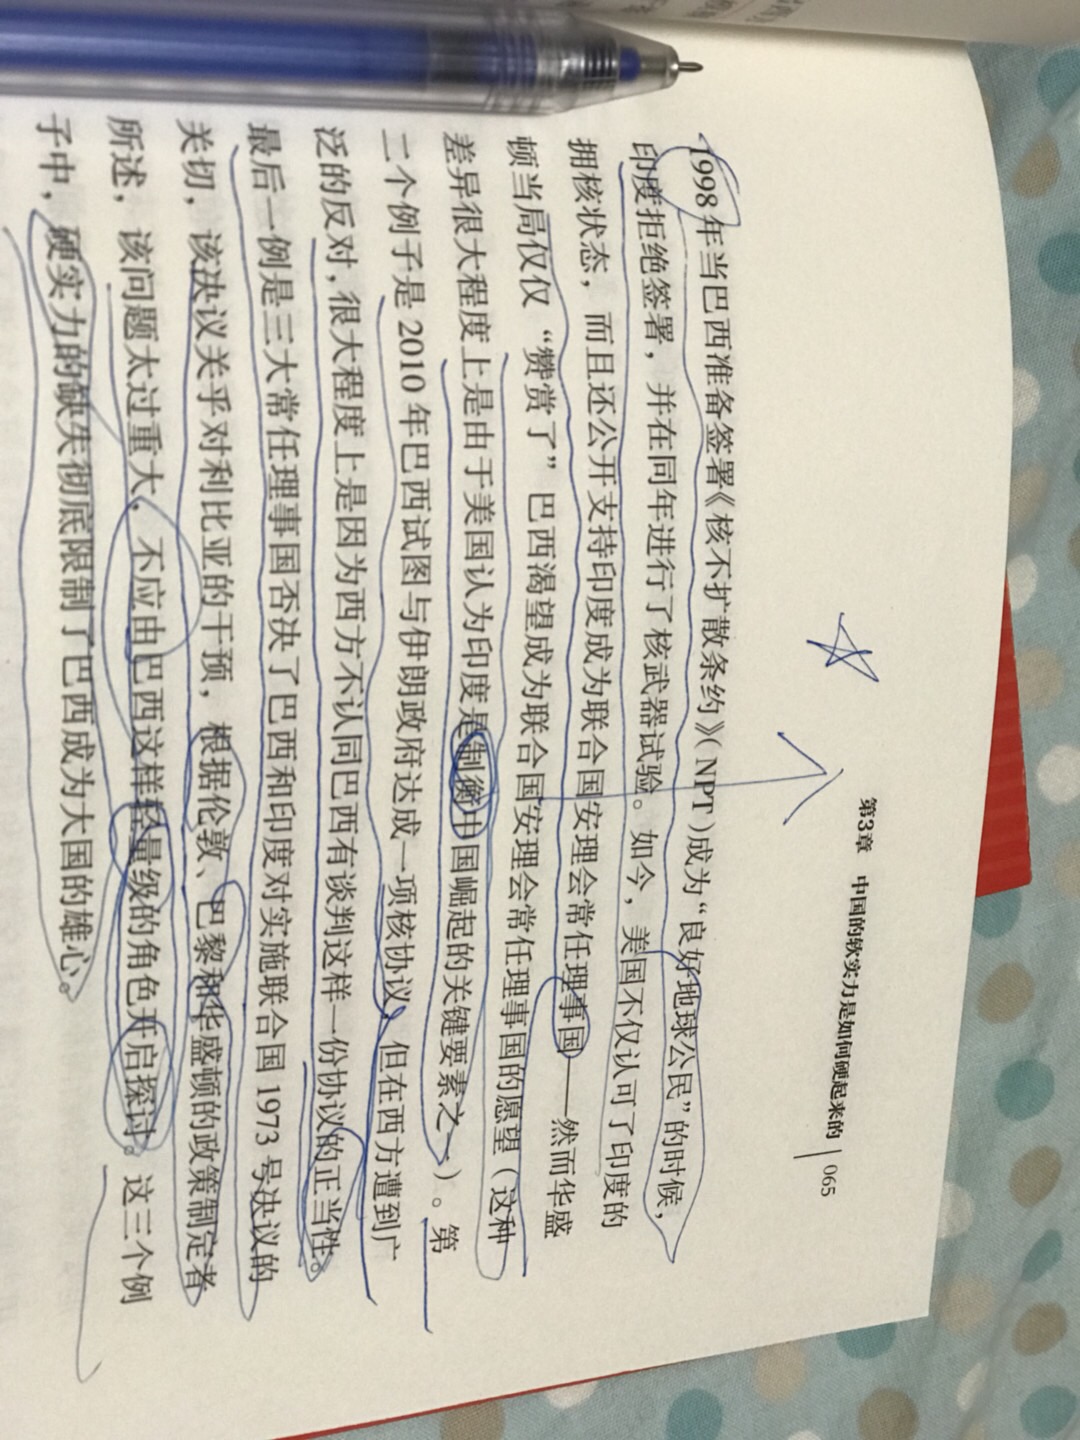 第3章 中国的软实力是如何硬起来的 | 065
1998年当巴西准备签署《核不扩散条约》(NPT)成为“良好地球公民”的时候，
印度拒绝签署，并在同年进行了核武器试验。如今，美国不仅认可了印度的
拥核状态，而且还公开支持印度成为联合国安理会常任理事国——然而华盛
顿当局仅仅“赞赏了”巴西渴望成为联合国安理会常任理事国的愿望（这种
差异很大程度上是由于美国认为印度是制衡中国崛起的关键要素之一）。第
二个例子是2010年巴西试图与伊朗政府达成一项核协议，但在西方遭到广
泛的反对，很大程度上是因为西方不认同巴西有谈判这样一份协议的正当性。
最后一例是三大常任理事国否决了巴西和印度对实施联合国1973号决议的
关切，该决议关乎对利比亚的干预，根据伦敦、巴黎和华盛顿的政策制定者
所述，该问题太过重大，不应由巴西这样轻量级的角色开启探讨。这三个例
子中，硬实力的缺失彻底限制了巴西成为大国的雄心。